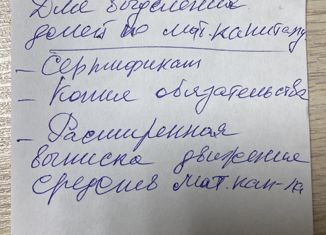 Для выделения
долей по мат.капиталу
- Сертификат
- Копия обязательства
- Расширенная
выписка движения
средств мат.кап-ла